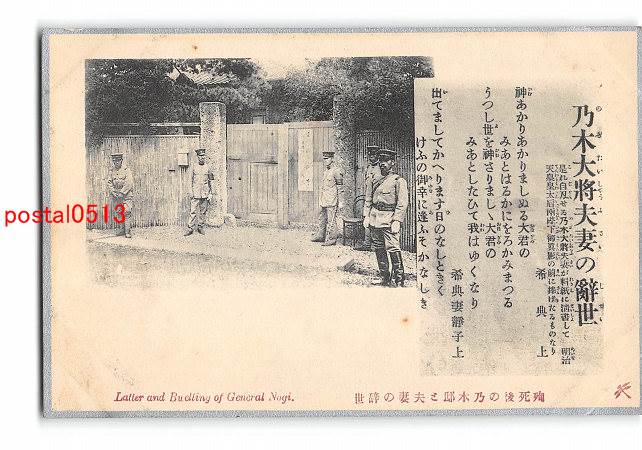 乃木大將夫妻の辭世
是れ自尽せる乃木大將夫妻が料紙に淸書して 明治
天皇皇太后兩陛下御眞影の前に捧げたるものなり
希典上
神あかりあかりましぬる大君の
みあとはるかにをろかみまつる
うつし世を神さりましゝ大君の
みあとしたひて我はゆくなり
希典妻靜子上
出てましてかへります日のなしときく
けふの御幸に逢ふそかなしき
postal0513
Latter and Buelling of General Nogi.
殉死後の乃木邸と夫妻の辞世